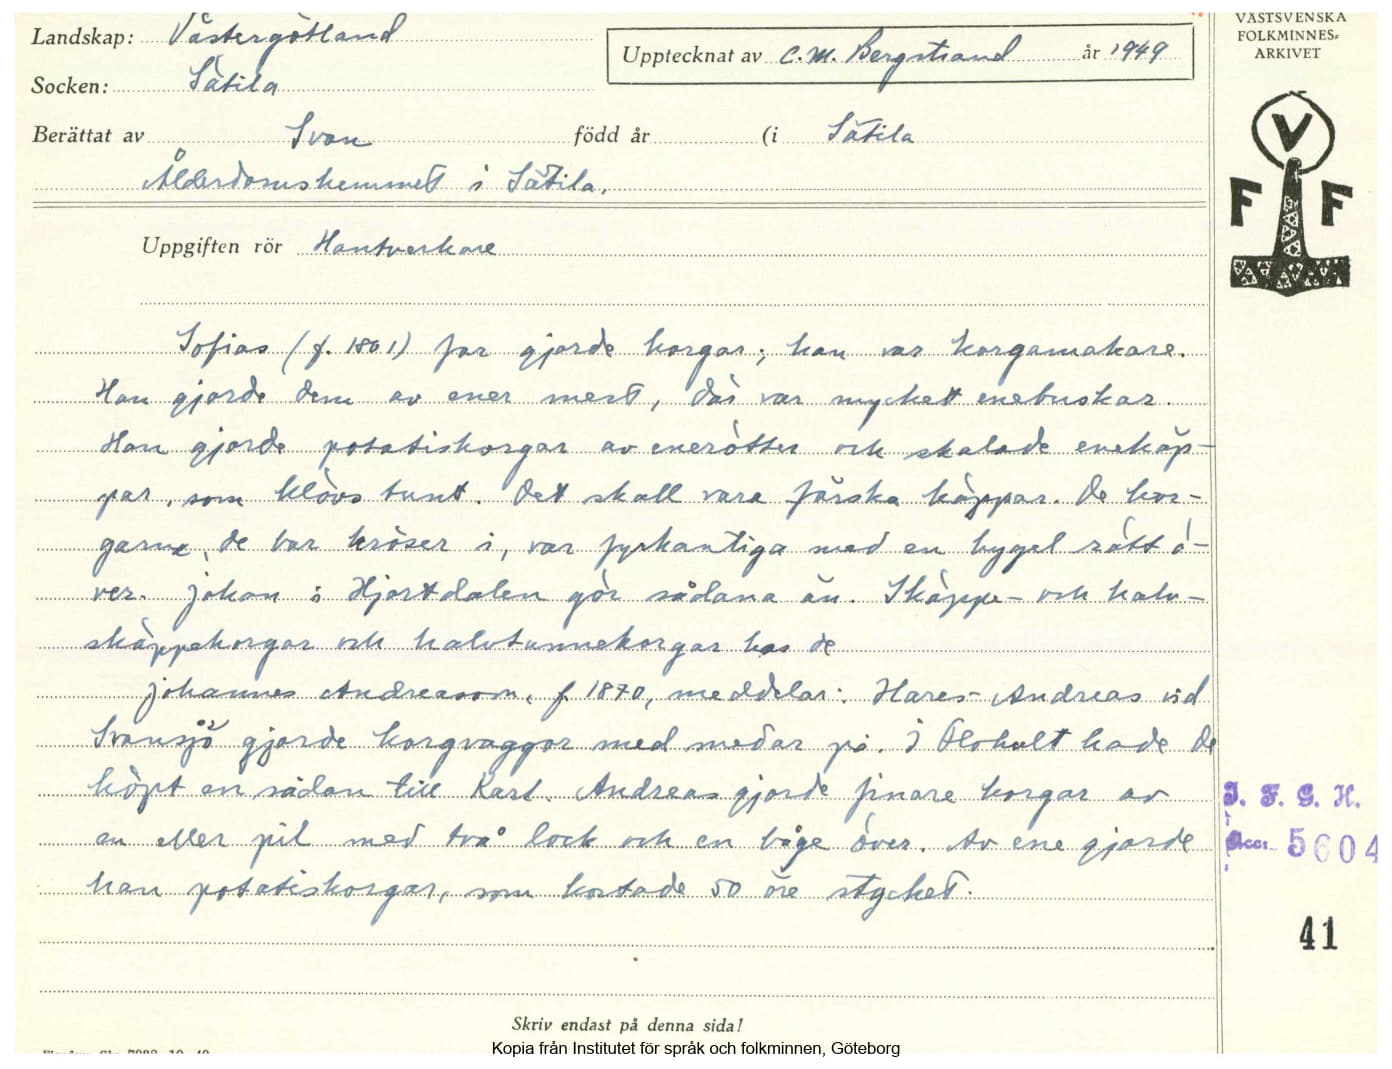 Landskap: Västergötland
Socken: Sätila
Upptecknat av C. M. Bergstrand år 1949
Berättat av Svan född år (i Sätila
Ålderdomshemmet i Sätila.
Uppgiften rör Hantverkare
Sofias (f. 1801) far gjorde korgar; han var korgamakare.
Han gjorde dem av ener mest, där var mycket enebuskar.
Han gjorde potatiskorgar av enerötter och skalade enekäp-
par, som klövs tunt. Det skall vara färska käppar. De kor-
garna, de bar kröser i, var fyrkantiga med en bygel rätt ö-
ver. Johan i Hjortdalen gör sådana än. Skäppe- och halv-
skäppekorgar och halvtunnekorgar has de
Johannes Andreasson, f. 1870, meddelar: Hares-Andreas vid
Svansjö gjorde korgvaggor med medar på. I Flohult hade de
köpt en sådan till Karl. Andreas gjorde finare korgar av
en eller pil med två lock och en båge över. Av ene gjorde
han potatiskorgar, som kostade 50 öre stycket.
Skriv endast på denna sida!
Kopia från Institutet för språk och folkminnen, Göteborg
VÄSTSVENSKA
FOLKMINNES-
ARKIVET
V
F F
I. F. G. H.
Acc: 5604
41